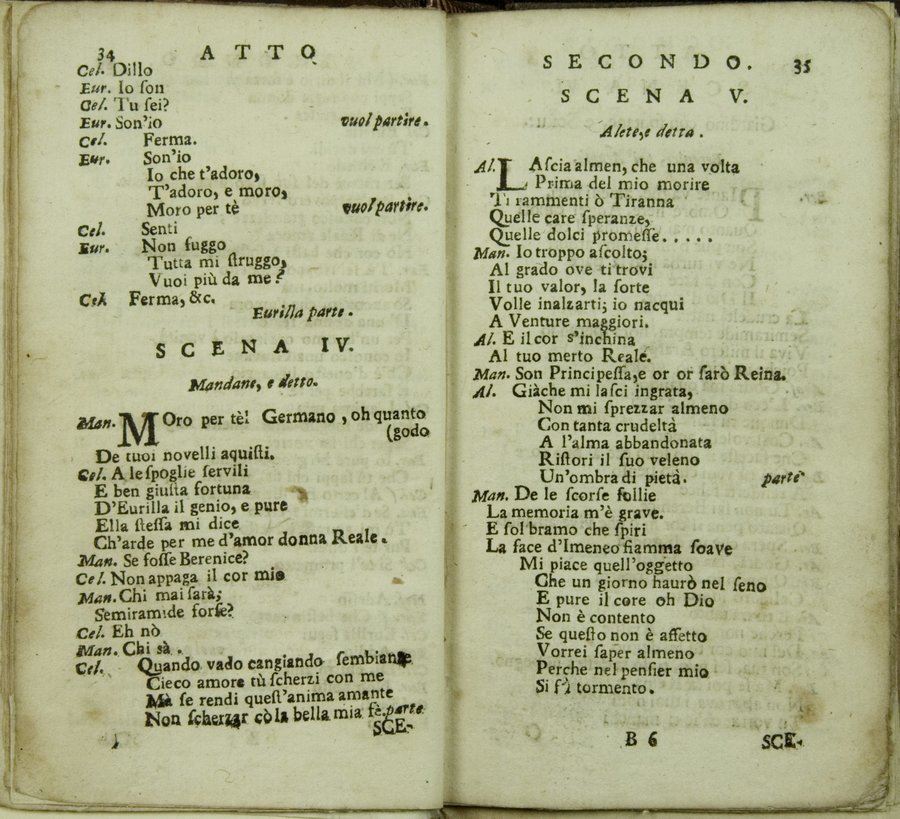 34 ATTO
Cel. Dillo
Eur. Io ſon
Cel. Tu ſei?
Eur. Son'io vuol partire.
Cel. Ferma.
Eur. Son'io
Io che t'adoro,
T'adoro, e moro,
Moro per tè vuol partire.
Cel. Senti
Eur. Non fuggo
Tutta mi ſtruggo,
Vuoi più da me?
Cel. Ferma, &c.
Eurilla parte.
SCENA IV.
Mandane, e detto.
Man. MOro per tè! Germano, oh quanto
(godo
De tuoi novelli aquiſti.
Cel. A le ſpoglie ſervili
E ben giuſta fortuna
D'Eurilla il genio, e pure
Ella ſteſſa mi dice
Ch'arde per me d'amor donna Reale.
Man. Se foſſe Berenice?
Cel. Non appaga il cor mio
Man. Chi mai ſarà;
Semiramide forſe?
Cel. Eh nò
Man. Chi sà.
Cel. Quando vado cangiando ſembiante
Cieco amore tù ſcherzi con me
Mà ſe rendi queſt'anima amante
Non ſcherzar cò la bella mia fè. parte
SCE-
SECONDO. 35
SCENA V.
Alete, e detta.
Al. LAſcia almen, che una volta
Prima del mio morire
Ti rammenti ò Tiranna
Quelle care ſperanze,
Quelle dolci promeſſe.....
Man. Io troppo aſcolto;
Al grado ove ti trovi
Il tuo valor, la ſorte
Volle inalzarti; io nacqui
A Venture maggiori.
Al. E il cor s'inchina
Al tuo merto Reale.
Man. Son Principeſſa, e or or ſarò Reina.
Al. Giàche mi laſci ingrata,
Non mi ſprezzar almeno
Con tanta crudeltà
A l'alma abbandonata
Riſtori il ſuo veleno
Un'ombra di pietà. parte
Man. De le ſcorſe follie
La memoria m'è grave.
E ſol bramo che ſpiri
La face d'Imeneo fiamma ſoave
Mi piace quell'oggetto
Che un giorno haurò nel ſeno
E pure il core oh Dio
Non è contento
Se queſto non è affetto
Vorrei ſaper almeno
Perche nel penſier mio
Si fà tormento.
B 6 SCE-